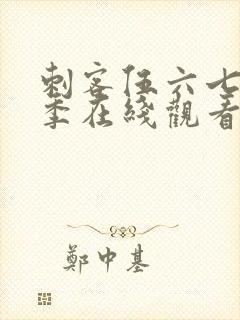 刺客伍六七
季在綫觀看
鄭中基